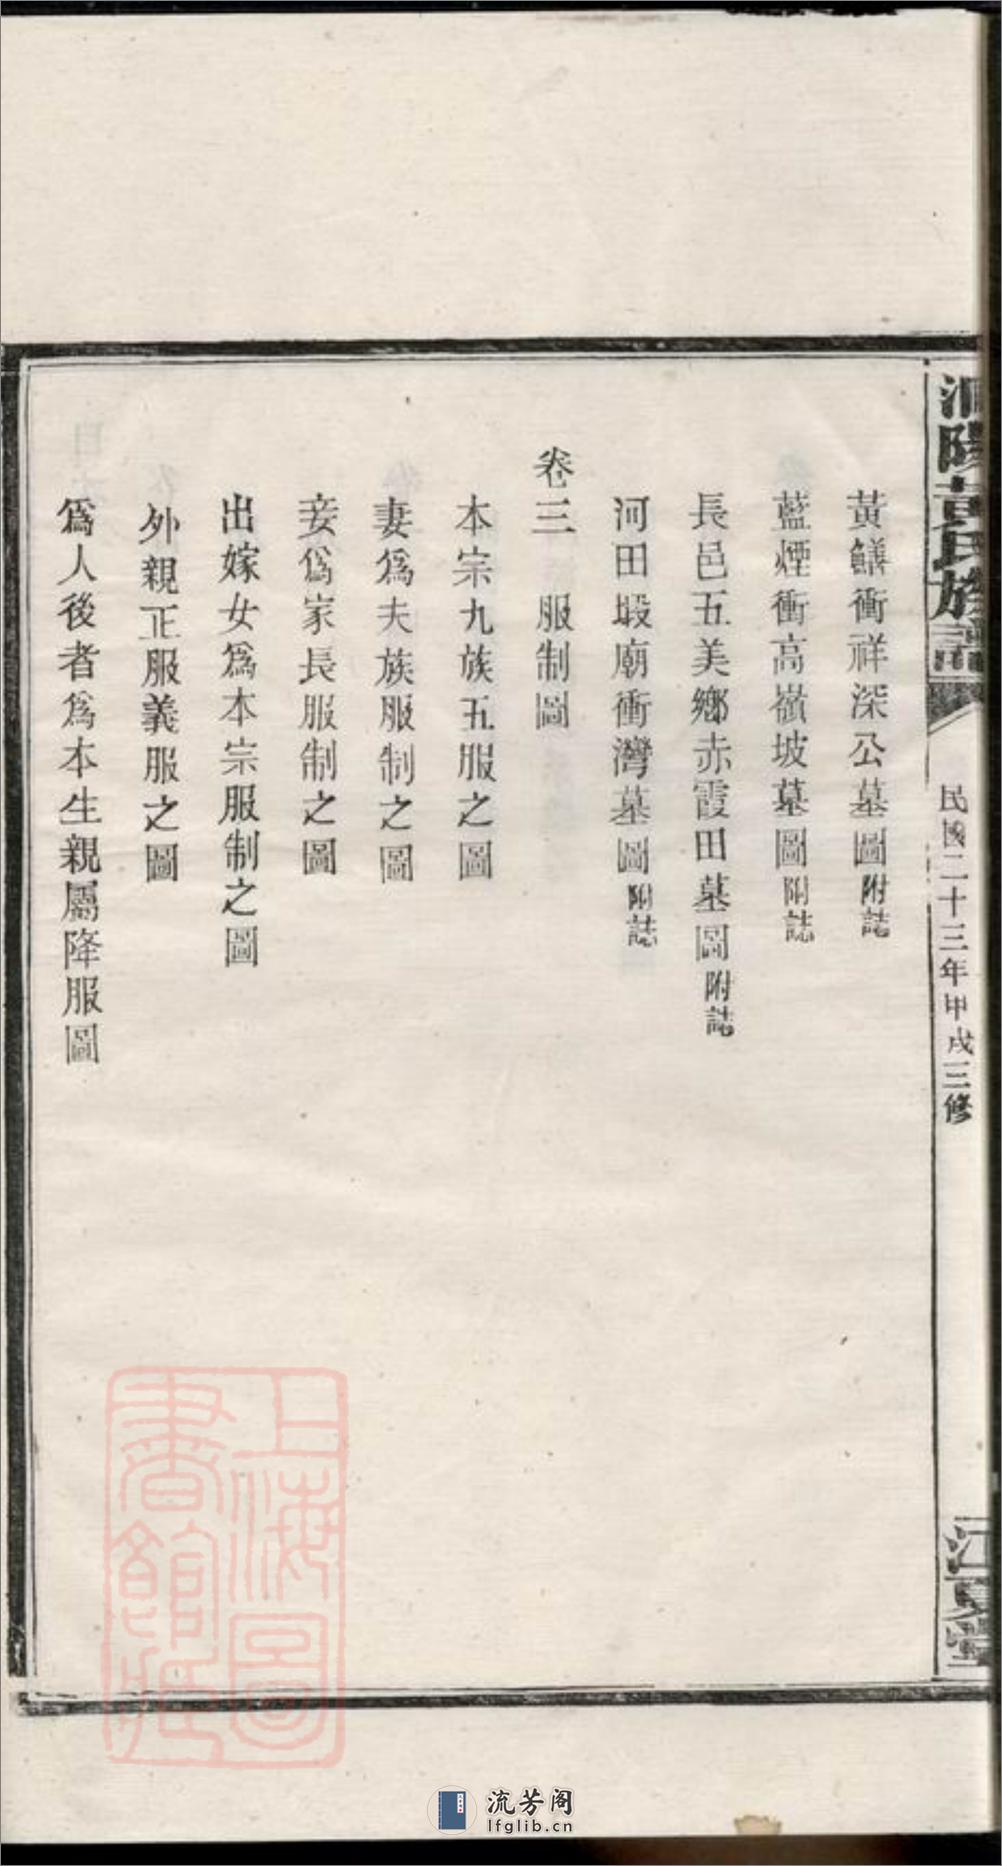 陽黃氏族譜
民國二十三年甲戌三修
江夏堂
黃鱔衝祥深公墓圖附誌
藍煙衝高嶺坡墓圖附誌
長邑五美鄉赤霞田墓圖附誌
河田塅廟衝灣墓圖附誌
卷三 服制圖
本宗九族五服之圖
妻爲夫族服制之圖
妾爲家長服制之圖
出嫁女爲本宗服制之圖
外親正服義服之圖
爲人後者爲本生親屬降服圖
上海圖
書館藏
流芳阁
lfglib.cn